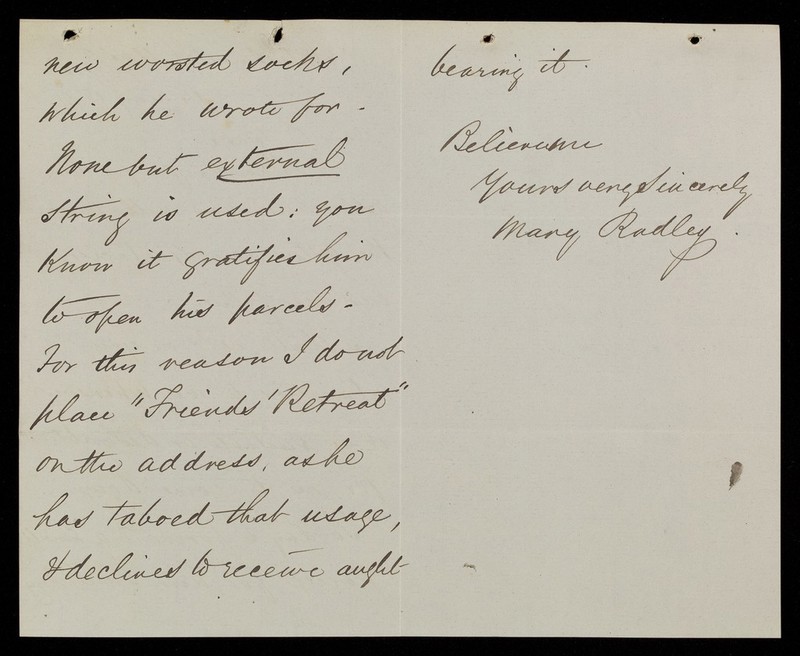 new worsted socks,
which he wrote for -
None but external
string is used: you
know it gratifies him
to open his parcels -
For this reason I do not
place "Friends' Retreat"
on the address, as he
has taboed that usage,
& declines to receive aught
bearing it.
Believe me
Yours very Sincerely
Mary Radley.